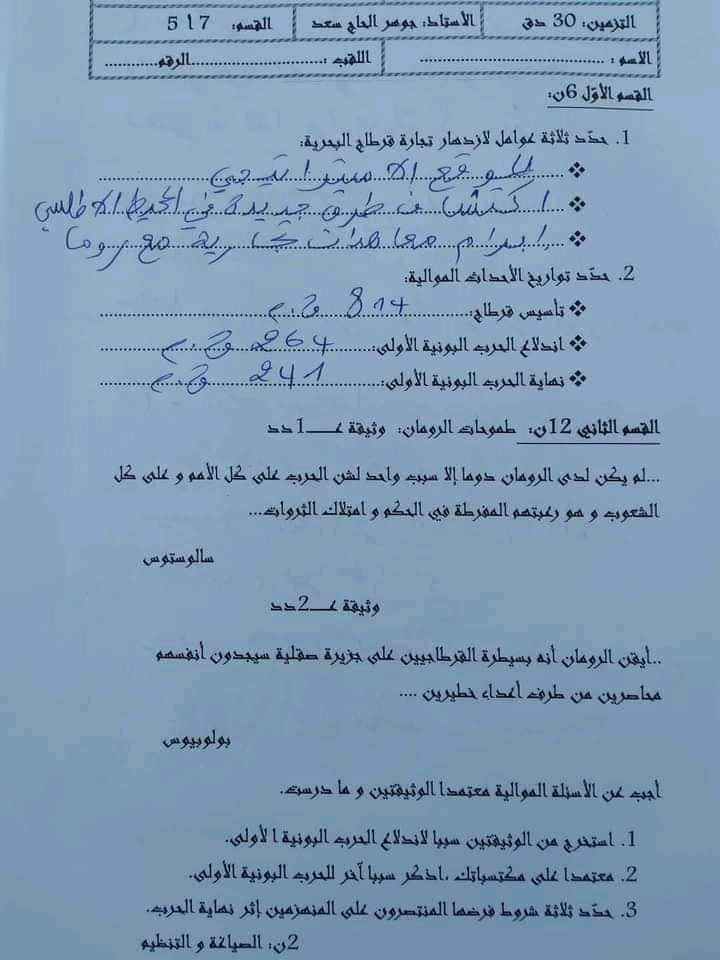 التزمين: 30 دق الأستاذ: جوهر الحاج سعد القسم: 7 أ 5
الاسم : ........................................ اللقب :.............................الرقم............
القسم الأوّل 6ن:
1. حدّد ثلاثة عوامل لازدهار تجارة قرطاج البحرية:
❖ الموقع الاستراتيجي
❖ اكتشاف طرق جديدة في المحيط الاطلسي
❖ ابرام معاهدات تجارية مع روما
2. حدّد تواريخ الأحداث الموالية:
❖ تأسيس قرطاج: 814 ق.م
❖ اندلاع الحرب البونية الأولى: 264 ق.م
❖ نهاية الحرب البونية الأولى: 241 ق.م
القسم الثاني 12ن: طموحات الرومان: وثيقة عـــ1دد
...لم يكن لدى الرومان دوما إلا سبب واحد لشن الحرب على كل الأمم و على كل
الشعوب و هو رغبتهم المفرطة في الحكم و امتلاك الثروات...
سالوستوس
وثيقة عـــ2دد
..أيقن الرومان أنه بسيطرة القرطاجيين على جزيرة صقلية سيجدون أنفسهم
محاصرين من طرف أعداء خطيرين ....
بولوبيوس
أجب عن الأسئلة الموالية معتمدا الوثيقتين و ما درست.
1. استخرج من الوثيقتين سببا لاندلاع الحرب البونية الأولى.
2. معتمدا على مكتسباتك ،اذكر سببا آخر للحرب البونية الأولى.
3. حدّد ثلاثة شروط فرضها المنتصرون على المنهزمين إثر نهاية الحرب.
2ن: الصياغة و التنظيم